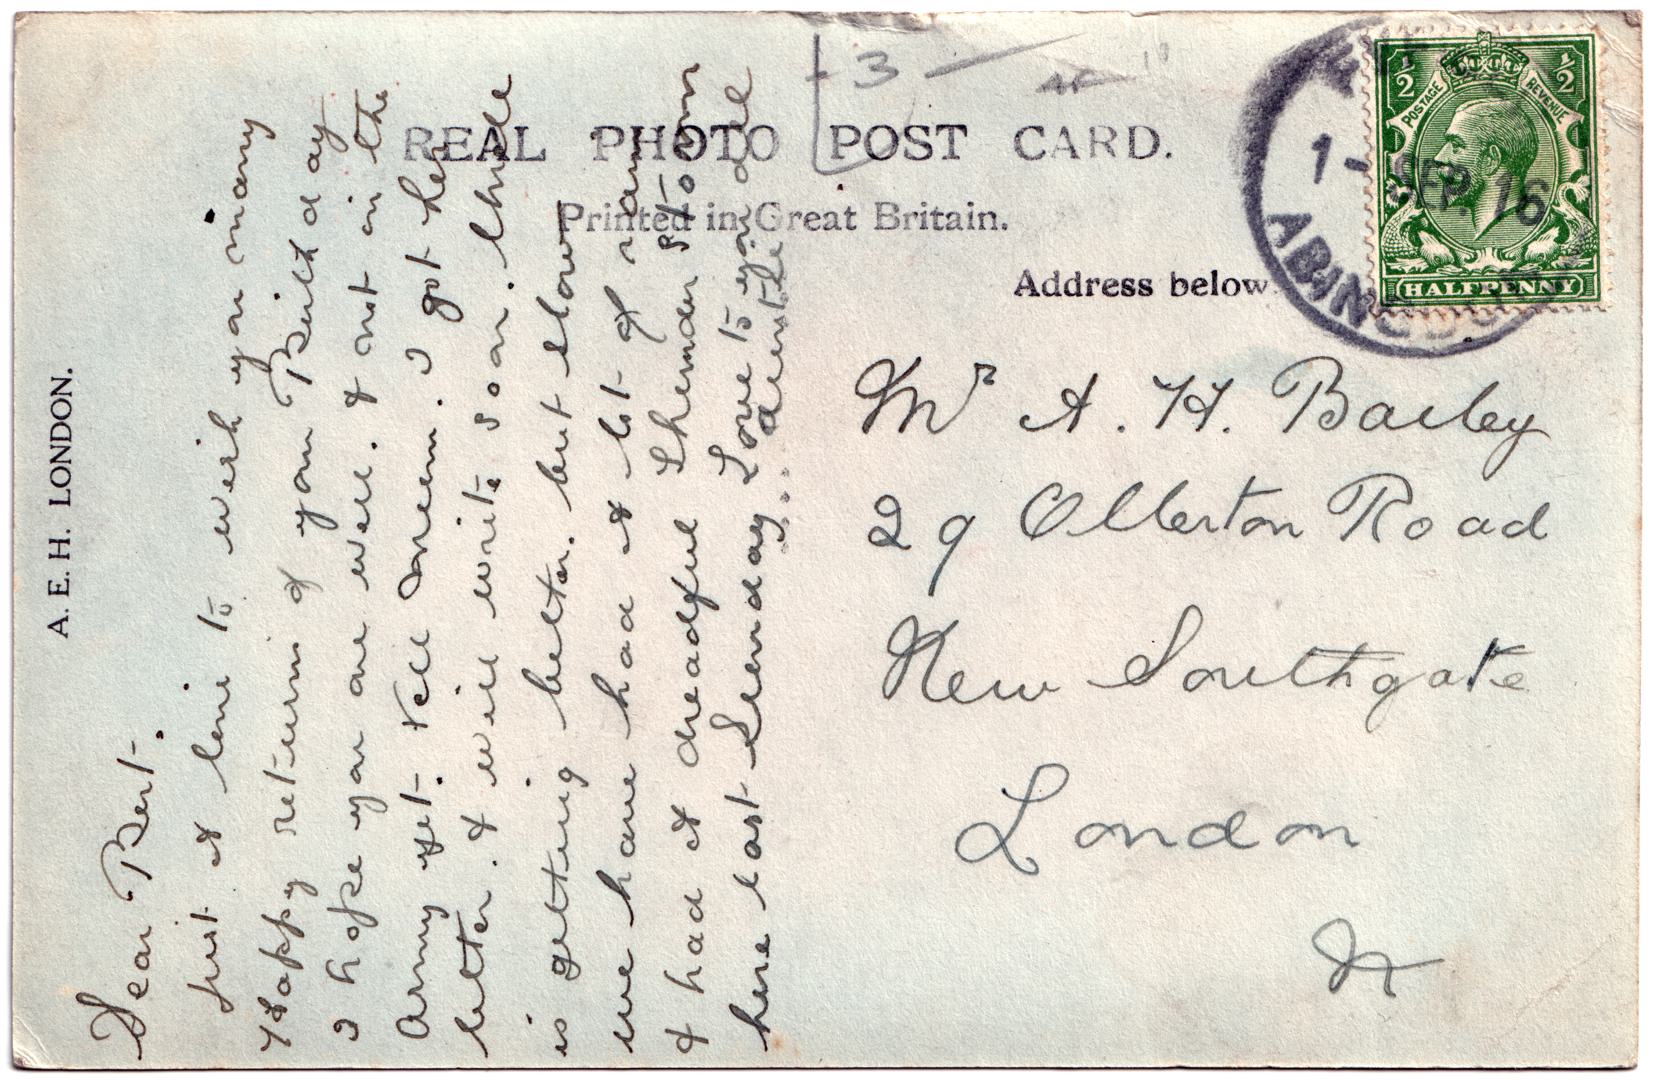 A. E. H. LONDON.
Dear Bert.
Just a line to wish you many
Happy returns of your Birthday
I hope you are well. & not in the
Army yet. Tell Mum. I got her
letter. & will write soon. Uncle
is getting better. but slow
we have had a lot of rain
& had a dreadful Thunder storm
here last Sunday. Love to you all
Auntie
REAL PHOTO POST CARD.
Printed in Great Britain.
3
Address below
POSTAGE REVENUE
1/2 1/2
HALFPENNY
1- SEP. 16
ABINGDON
Mr A. H. Bailey
29 Ollerton Road
New Southgate
London
N